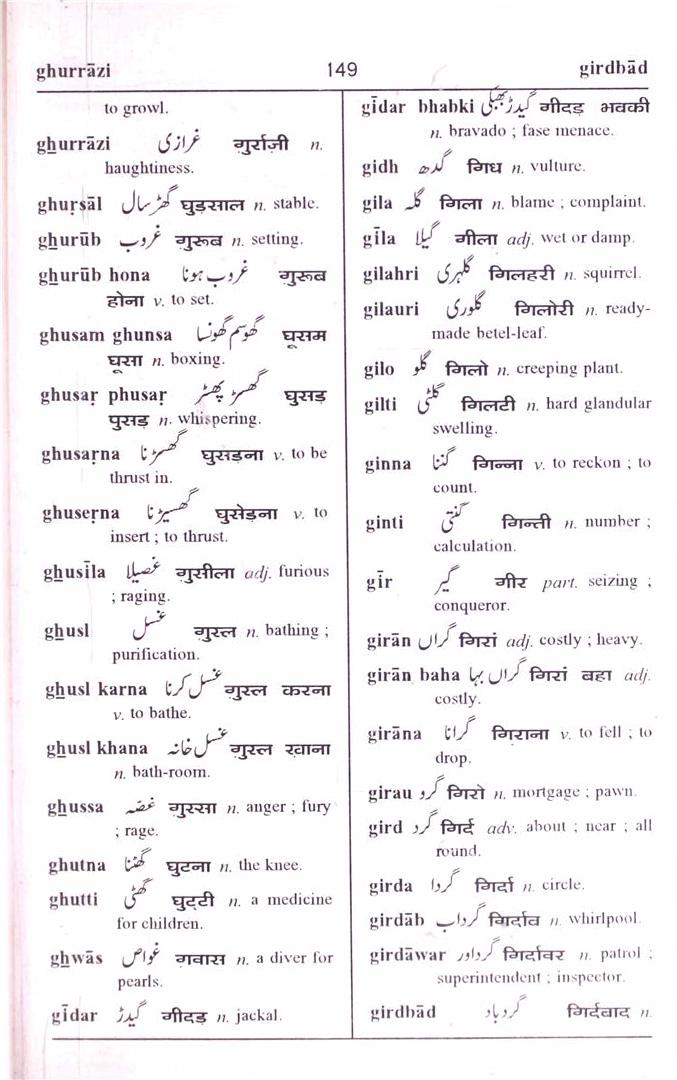 ghurrāzi 149 girdbād
to growl.
ghurrāzi غرازی गुर्राज़ी n.
haughtiness.
ghuṛsāl گھڑسال घुड़साल n. stable.
ghurūb غروب गुरूब n. setting.
ghurūb hona غروب ہونا गुरूब
होना v. to set.
ghusam ghunsa گھوسم گھونسا घूसम
घूसा n. boxing.
ghusaṛ phusaṛ گھسڑ پھسڑ घुसड़
पुसड़ n. whispering.
ghusaṛna گھسڑنا घुसड़ना v. to be
thrust in.
ghuseṛna گھسیڑنا घुसेड़ना v. to
insert ; to thrust.
ghusīla غصیلا गुसीला adj. furious
; raging.
ghusl غسل गुस्ल n. bathing ;
purification.
ghusl karna غسل کرنا गुस्ल करना
v. to bathe.
ghusl khana غسل خانہ गुस्ल खाना
n. bath-room.
ghussa غصّہ गुस्सा n. anger ; fury
; rage.
ghutna گھٹنا घुटना n. the knee.
ghutti گھٹی घुट्टी n. a medicine
for children.
ghwās غواص गवास n. a diver for
pearls.
gīdar گیدڑ गीदड़ n. jackal.
gīdar bhabki گیدڑ بھبکی गीदड़ भवकी
n. bravado ; fase menace.
gidh گدھ गिध n. vulture.
gila گلہ गिला n. blame ; complaint.
gīla گیلا गीला adj. wet or damp.
gilahri گلہری गिलहरी n. squirrel.
gilauri گلوری गिलोरी n. ready-
made betel-leaf.
gilo گلو गिलो n. creeping plant.
gilti گلٹی गिलटी n. hard glandular
swelling.
ginna گننا गिन्ना v. to reckon ; to
count.
ginti گنتی गिन्ती n. number ;
calculation.
gīr گیر गीर part. seizing ;
conqueror.
girān گراں गिरां adj. costly ; heavy.
girān baha گراں بہا गिरां बहा adj.
costly.
girāna گرانا गिराना v. to fell ; to
drop.
girau گرو गिरो n. mortgage ; pawn.
gird گرد गिर्द adv. about ; near ; all
round.
girda گردا गिर्दा n. circle.
girdāb گرداب गिर्दाव n. whirlpool.
girdāwar گرداور गिर्दावर n. patrol ;
superintendent ; inspector.
girdbād گردباد गिर्दबाद n.